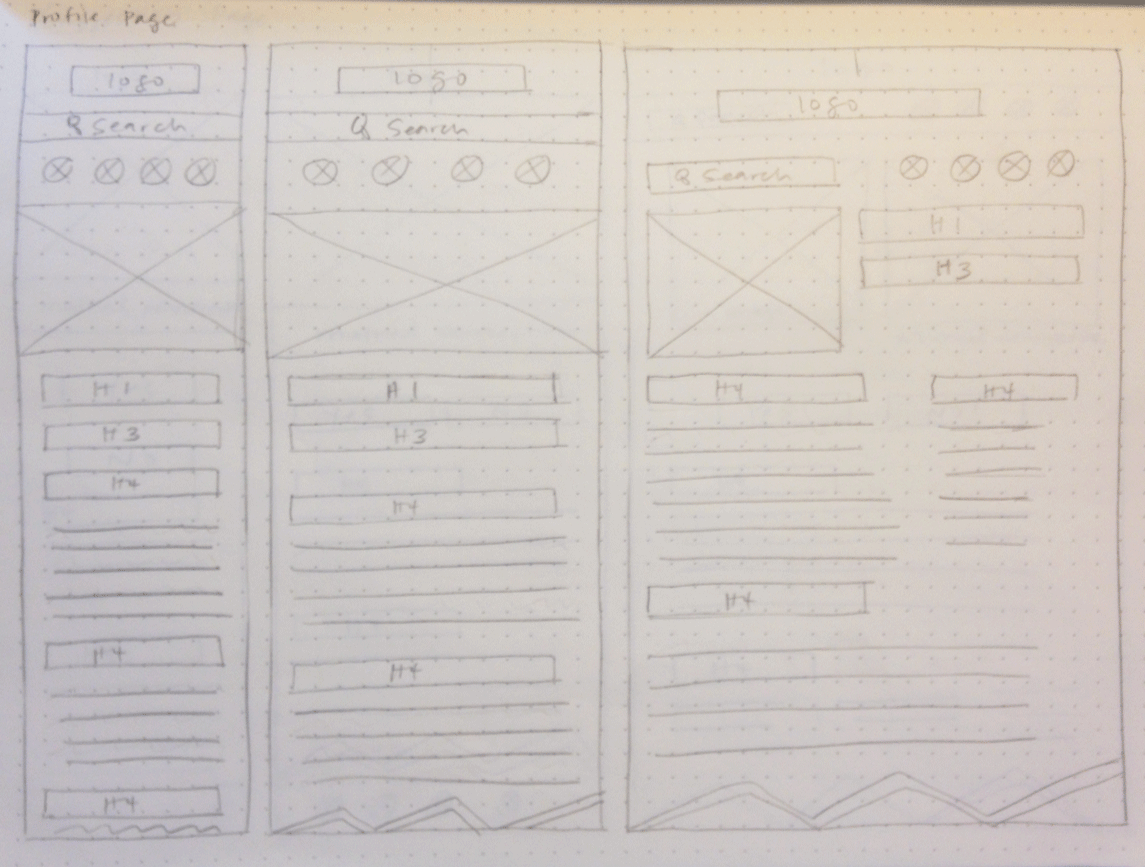 Profile Page
logo
Search
H1
H3
H4
H4
H4
logo
Search
H1
H3
H4
H4
logo
Search
H1
H3
H4
H4
H4